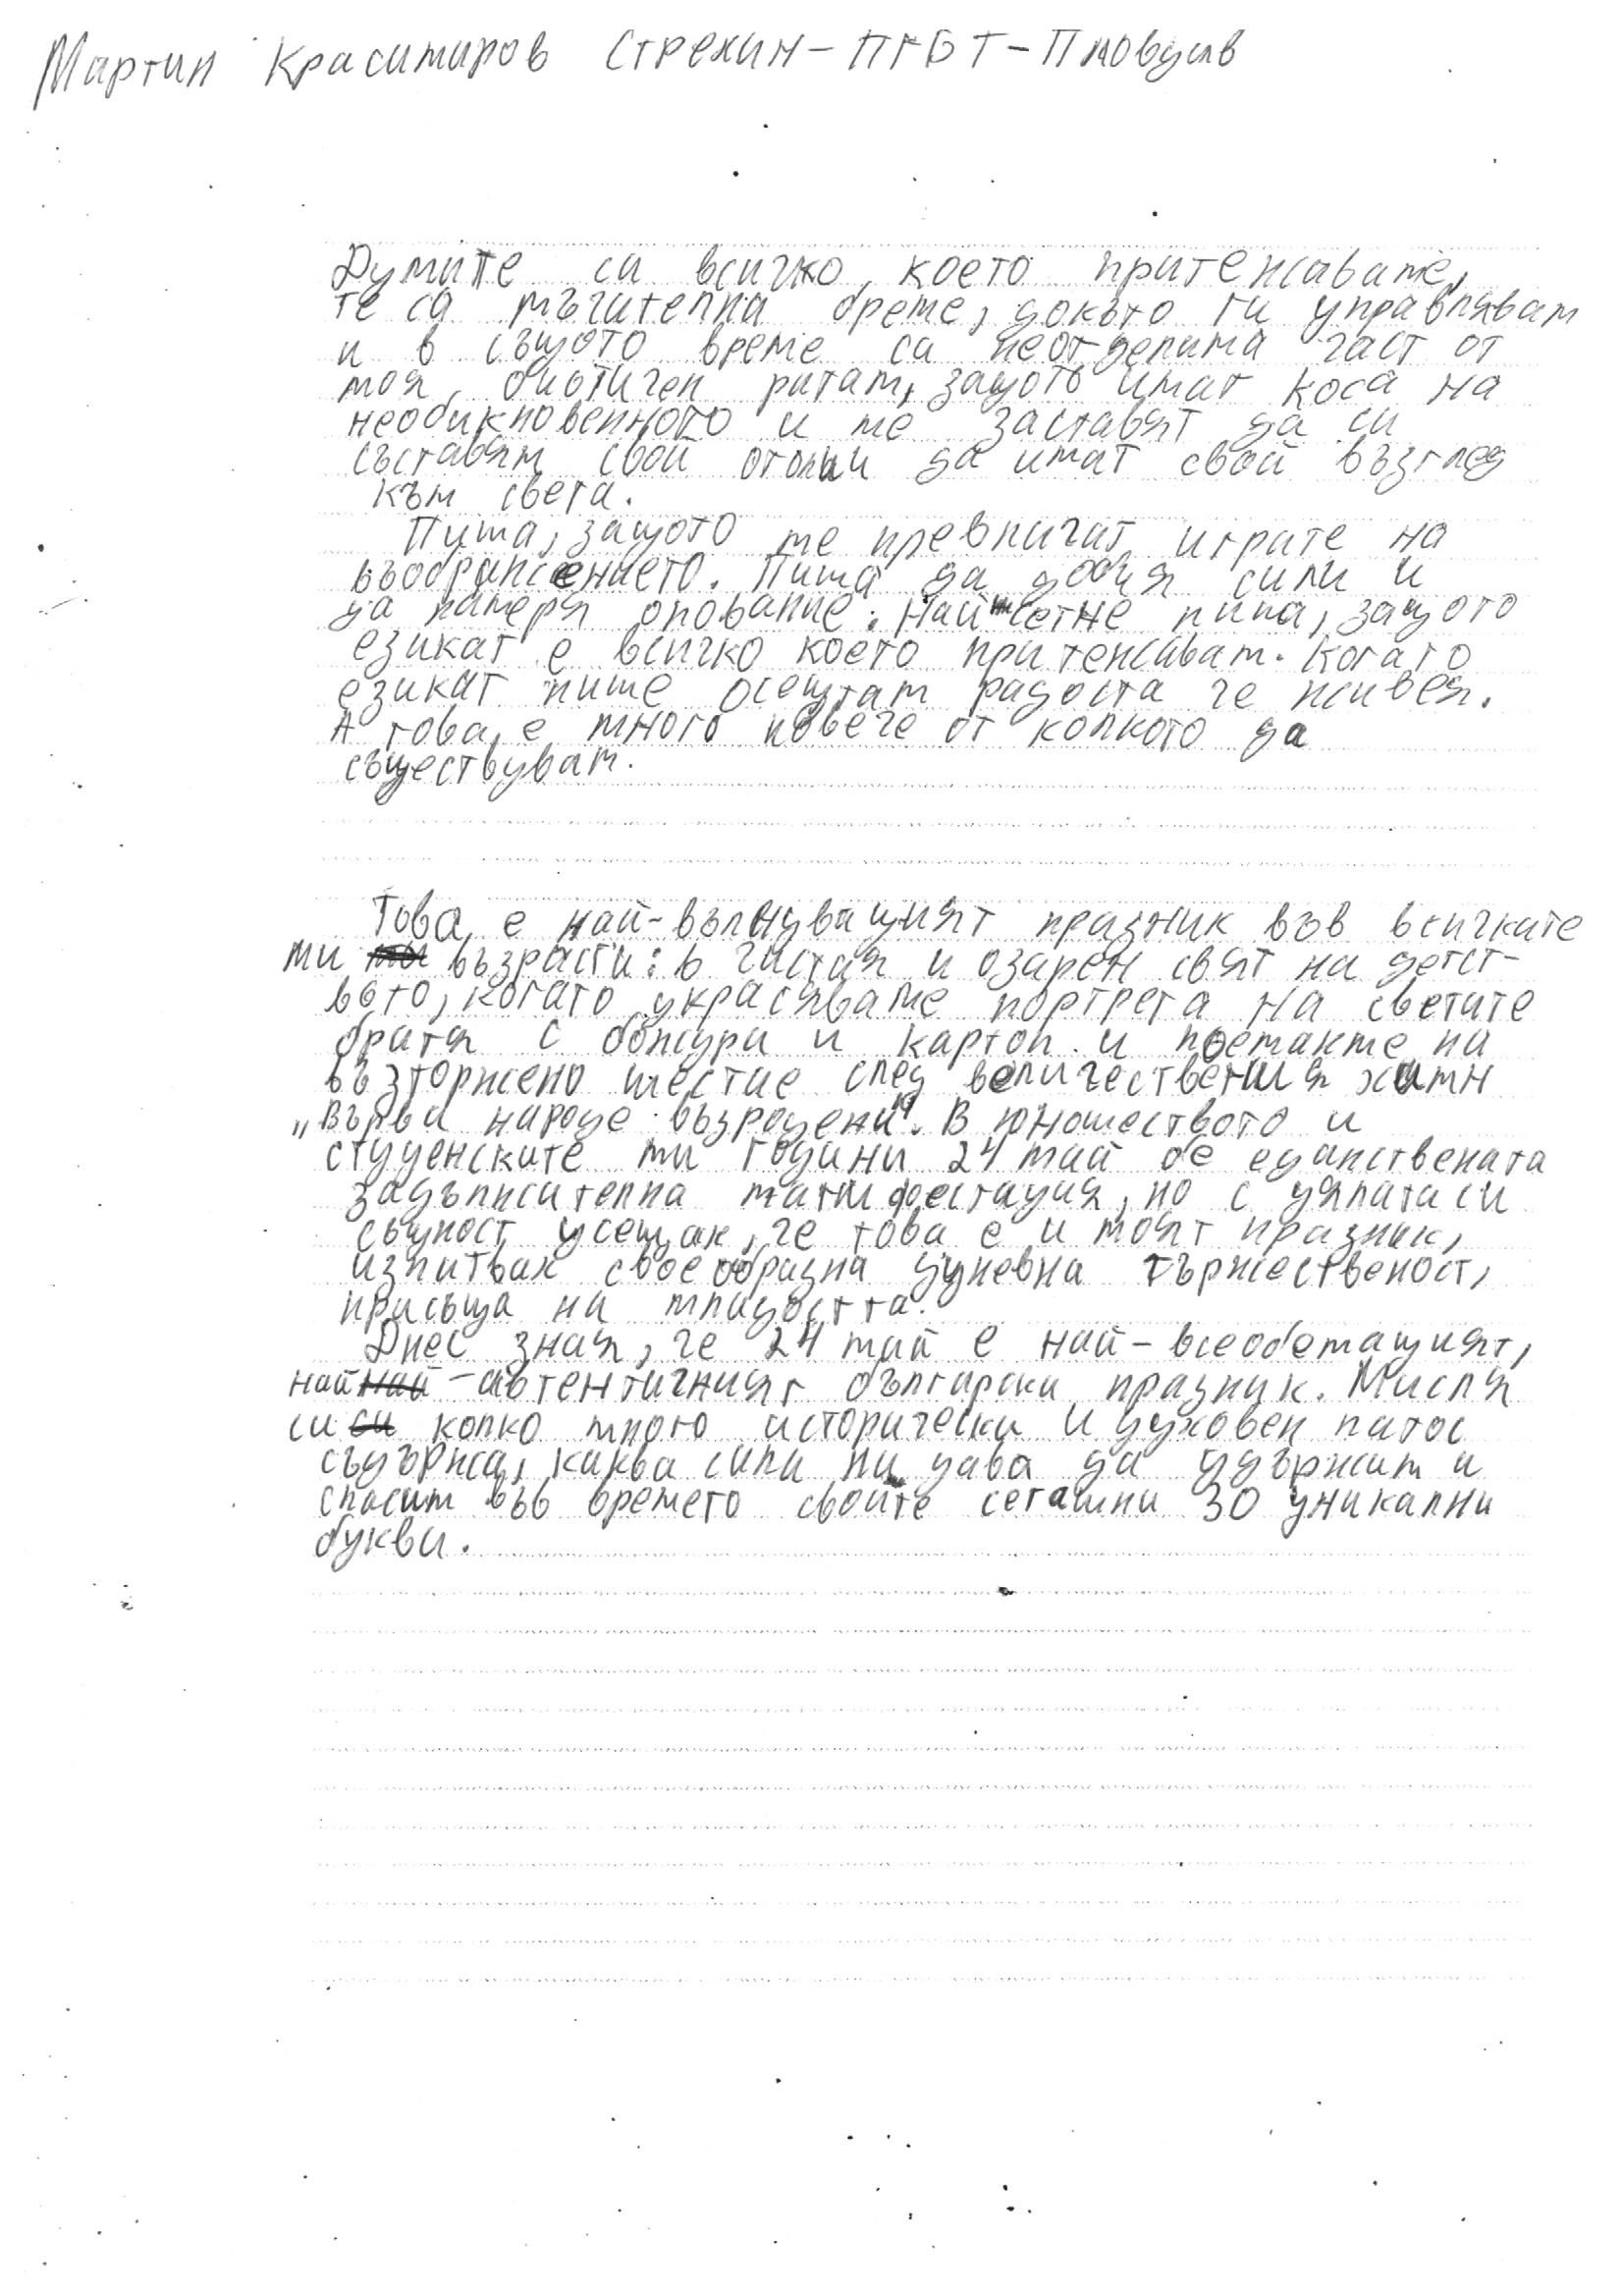 Мартин Красимиров Стрехин - ПГБТ - Пловдив
Думите са всичко, което притежаваме,
те са мъчителна бреме, докъто ги управлявам
и в същото време са неотделима част от
моя биотичен ритам, защото имат коса на
необикновенното и ме заставят да си
съставям свой да имат свой възглед
към света.
Пиша, защото ме превличат играте на
въображението. Пиша да добия сили и
да намеря опование. Най четне пиша, защото
езикат е всичко което притежавам. Когато
езикат пише осещтам радоста че живея.
А това е много повече от колкото да
съществувам.
Това е най-вълнуващият празник във всичките
ми възрасти: в чистия и озарен свят на детст-
вото, когато украсяваме портрета на светите
братя с божури и картон и поемахме на
възторжено шествие след величествения химн
„Върви народе възродени". В юношеството и
студенските ми години 24 май бе единствената
задължителна манифестация, но с цялата си
същност усещах, че това е и моят празник,
изпитвах своеобразна душевна тържественост,
присъща на младостта.
Днес зная, че 24 май е най-всеобемащият,
най-автентичният български празник. Мисля
си колко много исторически и духовен патос
съдържа, каква сила ни дава да удържим и
спасим във времето своите сегашни 30 уникални
букви.